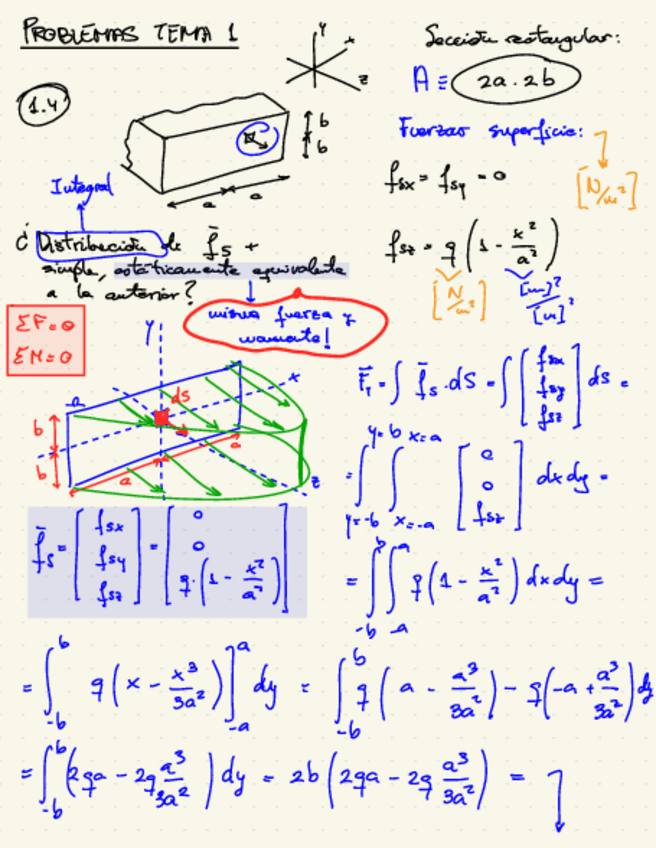 PROBLEMAS TEMA 1
1.4
y
x
z
b
b
a
a
Sección rectangular:
A ≡ 2a·2b
Fuerzas superficie:
[N/m²]
fsx = fsy = 0
fsz = q (1 - x²/a²)
[N/m²] [m]²/[m]²
Integral
¿Distribución de f̄s +
simple, estáticamente equivalente
a la anterior?
misma fuerza y
momento!
ΣF=0
ΣM=0
y
x
z
dS
b
b
a
a
f̄s = [fsx fsy fsz] = [0 0 q·(1 - x²/a²)]
F̄r = ∫ f̄s·dS = ∫ [fsx fsy fsz] dS =
= ∫_{y=-b}^{y=b} ∫_{x=-a}^{x=a} [0 0 fsz] dx dy =
= ∫_{-b}^{b} ∫_{-a}^{a} q (1 - x²/a²) dx dy =
= ∫_{-b}^{b} q (x - x³/3a²)]_{-a}^{a} dy = ∫_{-b}^{b} q (a - a³/3a²) - q(-a + a³/3a²) dy
= ∫_{-b}^{b} (2qa - 2q a³/3a²) dy = 2b (2qa - 2q a³/3a²) =